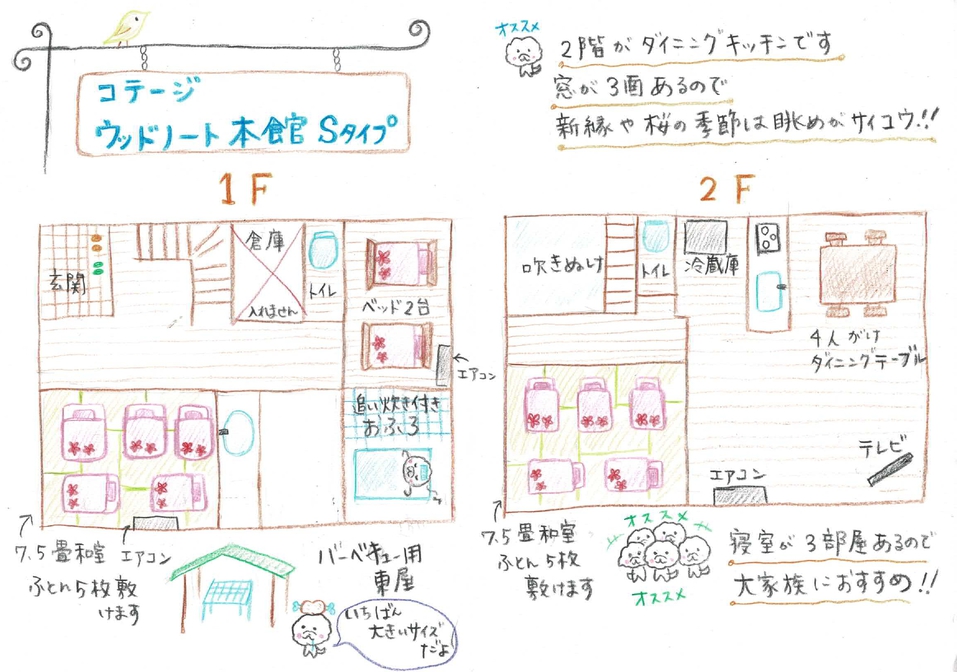 コテージ
ウッドノート本館官 Sタイプ
オススメ
2階がダイニングキッチンです
窓が3面あるので
新緑や桜の季節は眺めがサイコウ!!
1F
玄関
倉庫
入れません
トイレ
ベッド2台
エアコン
追い炊き付き
おふろ
7.5畳和室
ふとん5枚敷
けます
エアコン
バーベキュー用
東屋
いちばん
大きいサイズ
だよ
2F
吹きぬけ
トイレ
冷蔵庫
4人がけ
ダイニングテーブル
テレビ
エアコン
7.5畳和室
ふとん5枚
敷けます
オススメ
オススメ
寝室が3部屋あるので
大家族におすすめ!!